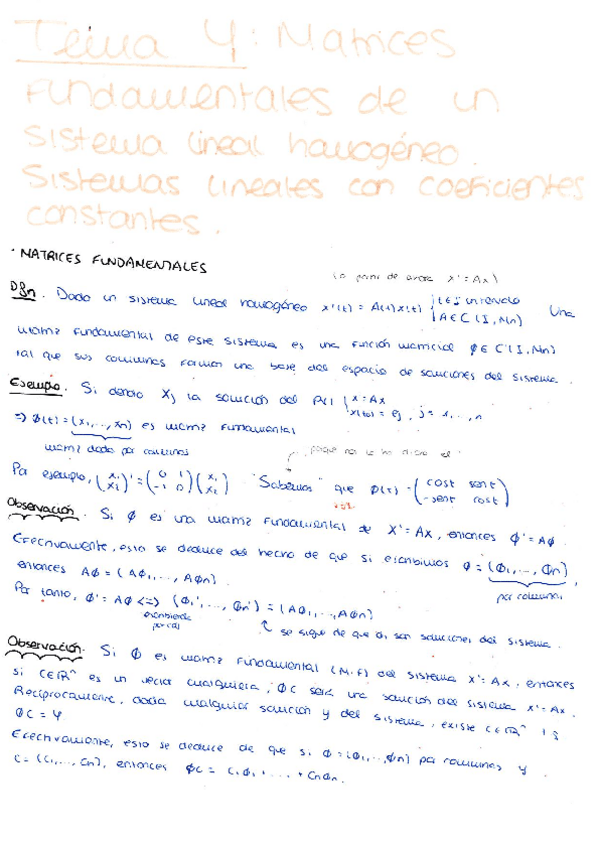 Tema 4: Matrices
Fundamentales de un
sistema lineal homogéneo.
Sistemas lineales con coeficientes
constantes.
· MATRICES FUNDAMENTALES
(a partir de ahora x' = Ax)
Dado un sistema lineal homogéneo x'(t) = A(t)x(t) { t ∈ I intervalo Una
A ∈ C(I, Mn)
matriz fundamental de este sistema es una función matricial φ ∈ C'(I, Mn)
tal que sus columnas forman una base del espacio de soluciones del sistema.
Ejemplo. Si denoto Xj la solución del PVI { x' = Ax
x(t0) = ej, j = 1, ..., n
=> φ(t) = (x1, ..., xn) es matriz fundamental
matriz dada por columnas
porque nos lo ha dicho el
Por ejemplo, (x1 x2)' = (0 1 -1 0)(x1 x2) "Sabemos" que φ(t) = (cost sent -sent cost)
Observación. Si φ es una matriz fundamental de X' = AX, entonces φ' = Aφ.
Efectivamente, esto se deduce del hecho de que si escribimos φ = (φ1, ..., φn),
por columnas
entonces Aφ = (Aφ1, ..., Aφn).
Por tanto, φ' = Aφ <=> (φ1', ..., φn') = (Aφ1, ..., Aφn)
escribiendo
por col
se sigue de que φi son soluciones del sistema.
Observación. Si φ es matriz fundamental (M.F) del sistema X' = Ax, entonces
si c ∈ ℝⁿ es un vector cualquiera, φc será una solución del sistema x' = Ax.
Recíprocamente, dada cualquier solución ψ del sistema, existe c ∈ ℝⁿ t q
φc = ψ
Efectivamente, esto se deduce de que si φ = (φ1, ..., φn) por columnas y
c = (c1, ..., cn), entonces φc = c1φ1 + ... + cnφn.